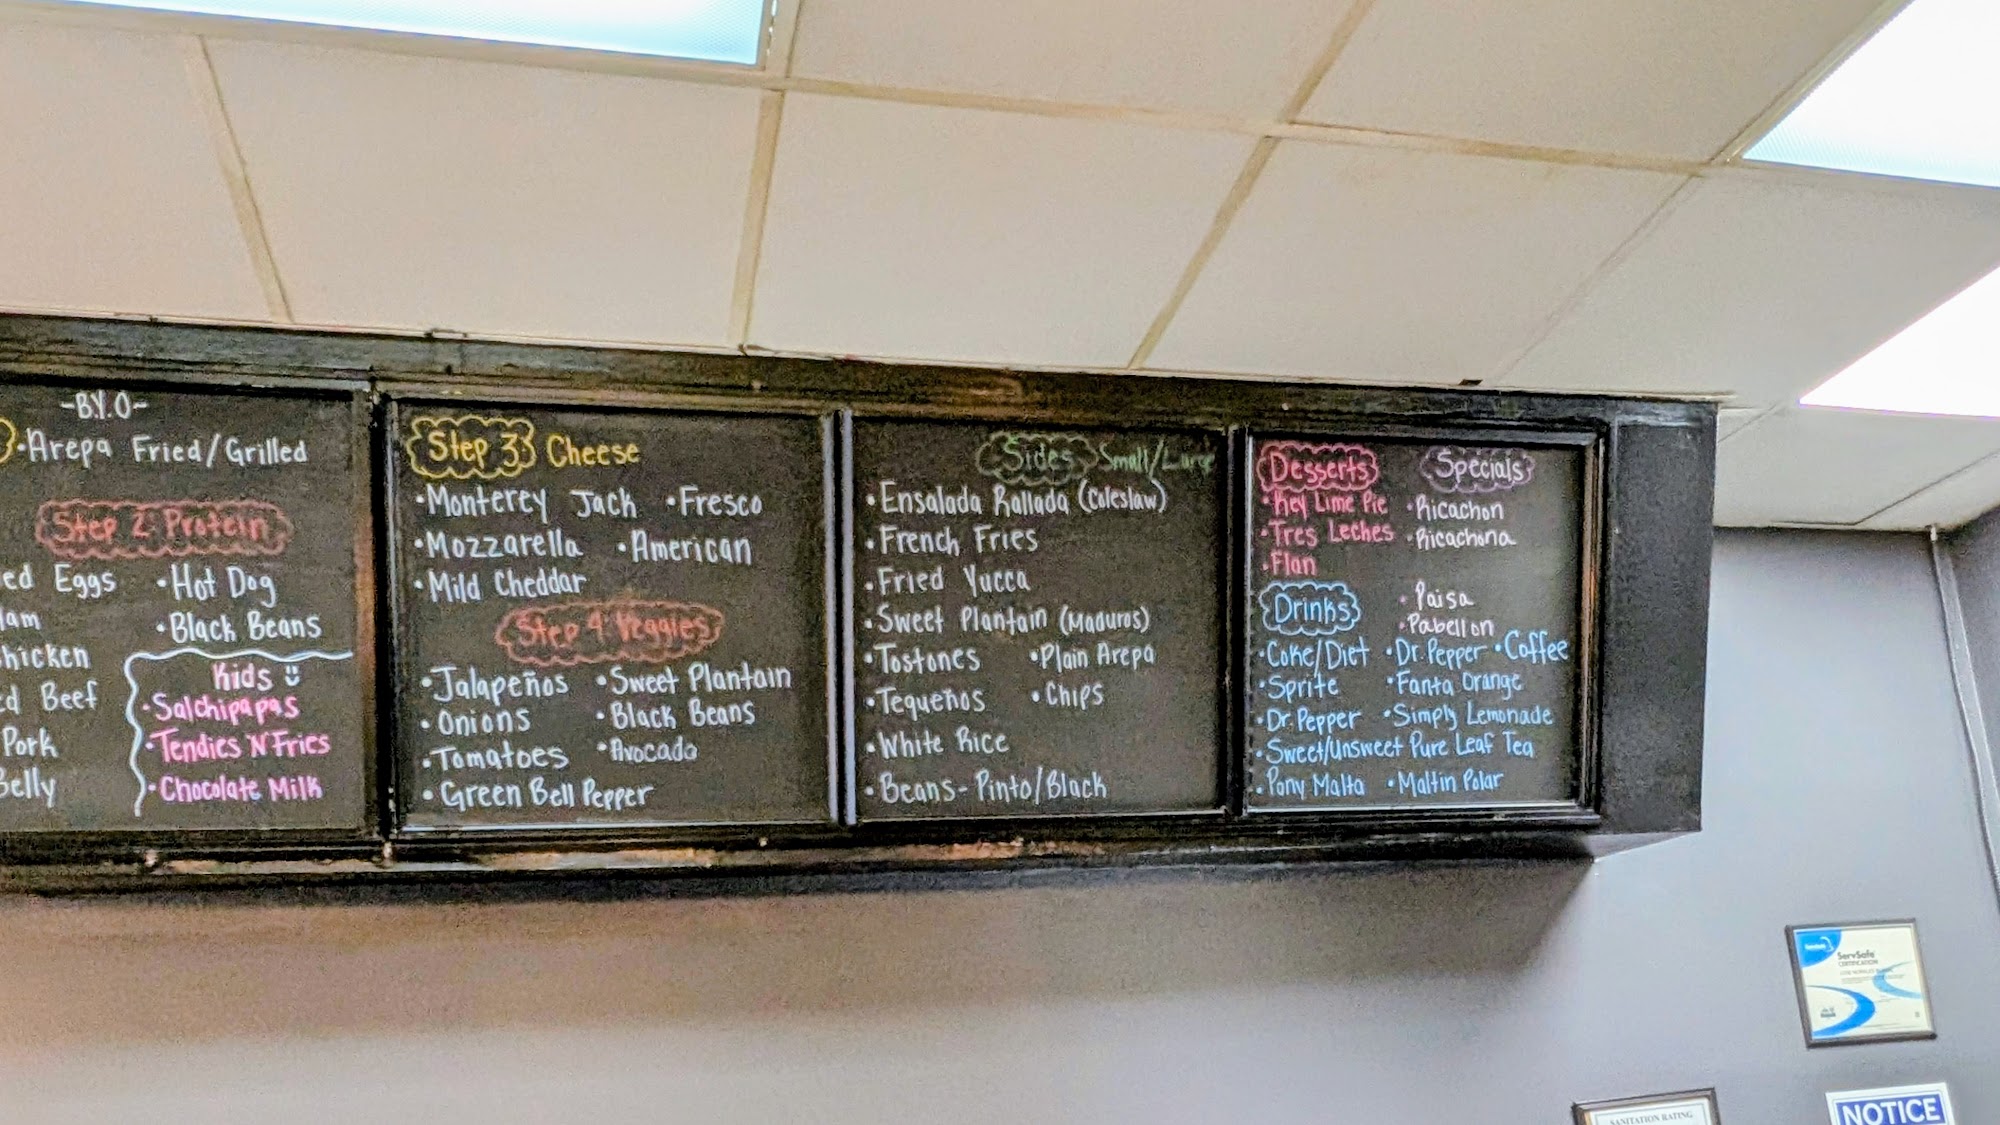 -B.Y.O-
•Arepa Fried/Grilled
Step 2 Protein
Eggs •Hot Dog
•Black Beans
Beef
Pork
Kids
•Salchipapas
•Tendies 'N Fries
•Chocolate Milk
Step 3 Cheese
•Monterey Jack •Fresco
•Mozzarella •American
•Mild Cheddar
Step 4 Veggies
•Jalapeños •Sweet Plantain
•Onions •Black Beans
•Tomatoes •Avocado
•Green Bell Pepper
Sides Small/Large
•Ensalada Rallada (Coleslaw)
•French Fries
•Fried Yucca
•Sweet Plantain (Maduros)
•Tostones •Plain Arepa
•Tequeños •Chips
•White Rice
•Beans-Pinto/Black
Desserts Specials
•Key Lime Pie •Ricachon
•Tres Leches •Ricachona
•Flan
Drinks •Paisa
•Pabellon
•Coke/Diet •Dr. Pepper •Coffee
•Sprite •Fanta Orange
•Dr. Pepper •Simply Lemonade
•Sweet/Unsweet Pure Leaf Tea
•Pony Malta •Maltin Polar
ServSafe
CERTIFICATION
SANITATION RATING
NOTICE